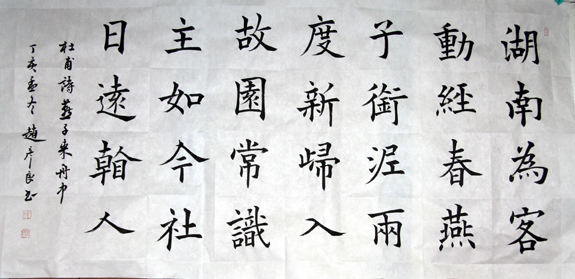 湖南為客
動經春燕
子銜泥兩
度新歸入
故園常識
主如今社
日遠看人
杜甫詩燕子來舟中
丁亥孟冬趙彥良書